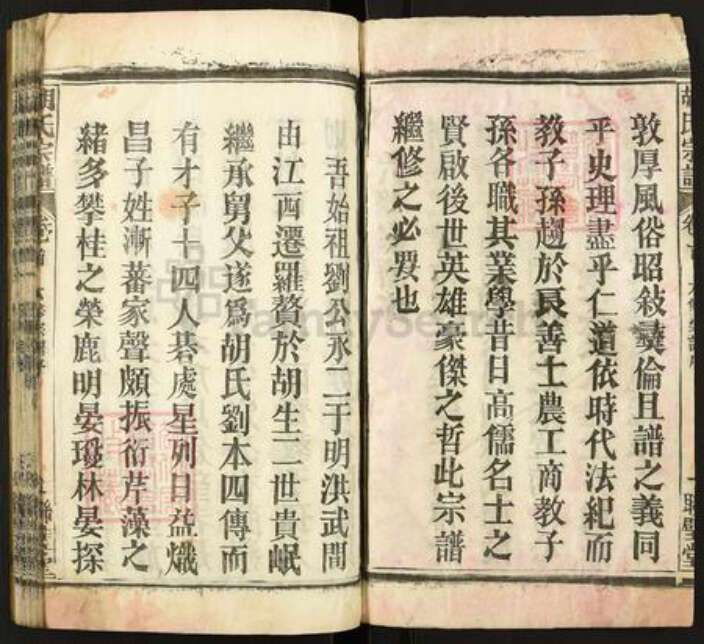 敦厚風俗昭敍彝倫且譜之義同
乎史理盡乎仁道依時代法紀而
教子孫趨於良善士農工商教子
孫各職其業學昔日高儒名士之
賢啟後世英雄豪傑之哲此宗譜
繼修之必要也
吾始祖劉公永二于明洪武間
由江西遷羅贅於胡生二世貴岷
繼承舅父遂爲胡氏劉本四傳而
有才子十四人碁處星列日益熾
昌子姓漸蕃家聲頗振衍芹藻之
緒多攀桂之榮鹿明晏瓊林晏探
胡氏宗譜 卷首
聯璧堂
FamilySearch